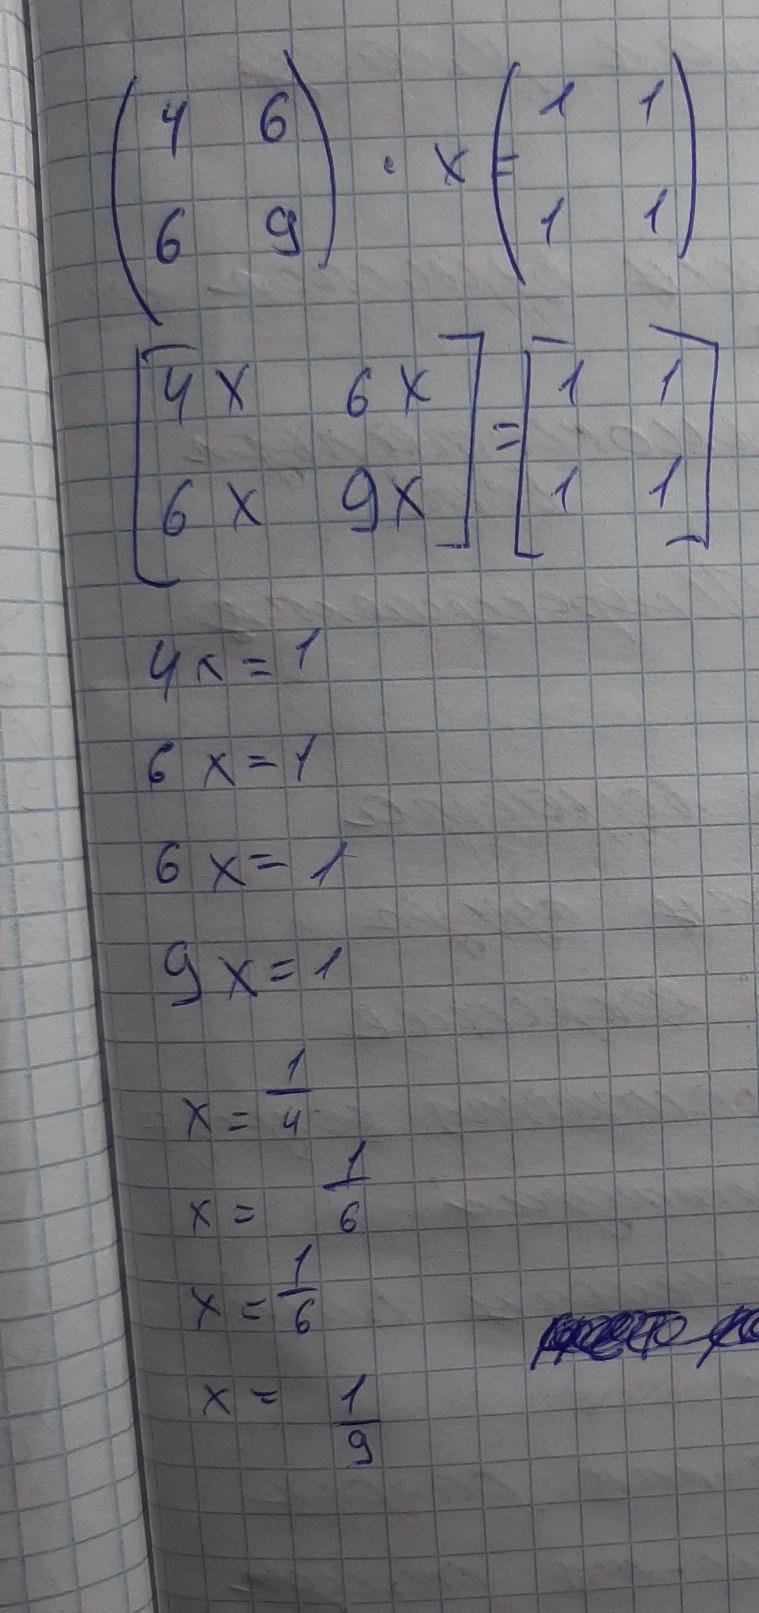 ( 4 6 ) · x = ( 1 1 )
( 6 9 ) ( 1 1 )
[ 4x 6x ] = [ 1 1 ]
[ 6x 9x ] [ 1 1 ]
4x = 1
6x = 1
6x = 1
9x = 1
x = 1/4
x = 1/6
x = 1/6
x = 1/9